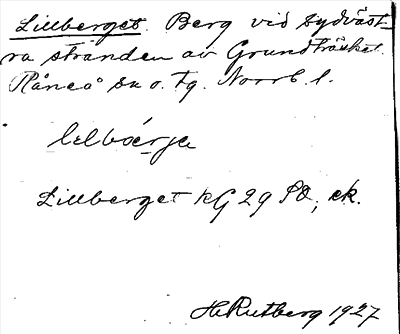 Lillberget. Berg vid sydväst-
ra stranden av Grundträsket.
Råneå sn o. tg. Norrb. l.
lelbärja
Lillberget kG 29 SO, ek.
H Rutberg 1927